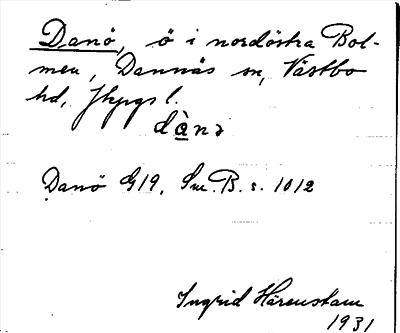 Danö, ö i nordöstra Bol-
men, Dannäs sn, Västbo
hd, Jkpgs l.
dànə
Danö G19, Sv. B. s. 1012
Ingrid Härenstam
1931